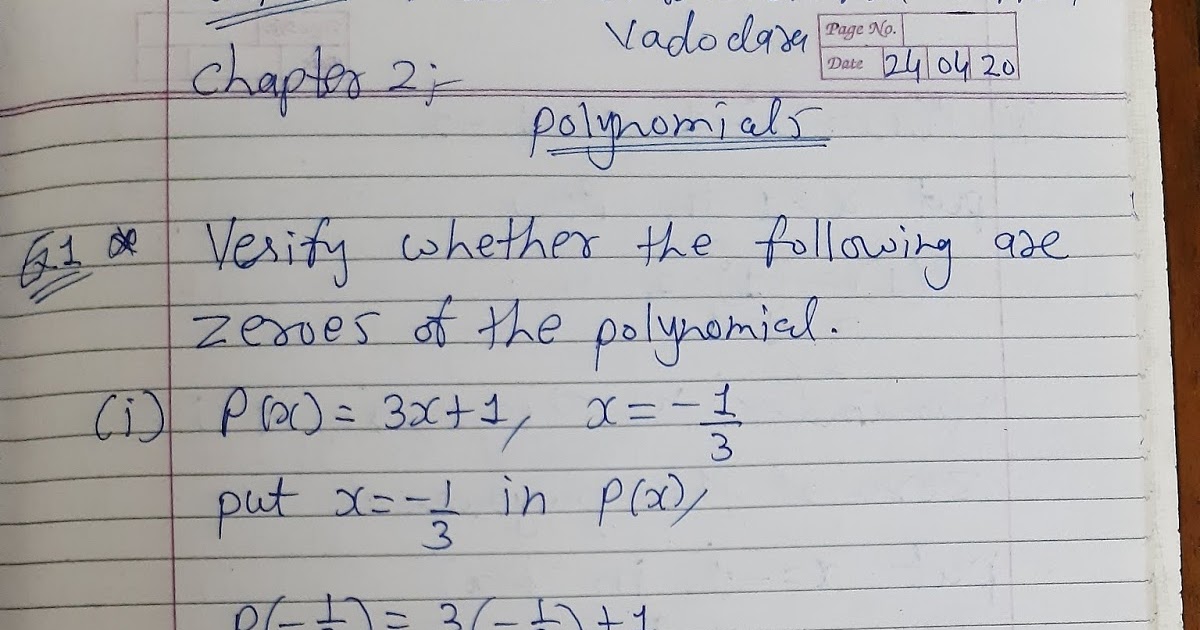 Vadodara
Page No.
Date 24 04 20
Chapter 2;-
Polynomials
Q.1 Verify whether the following are
zeroes of the polynomial.
(i) P(x) = 3x+1, x = -1/3
put x = -1/3 in P(x),
P(-1/3) = 3(-1/3) + 1